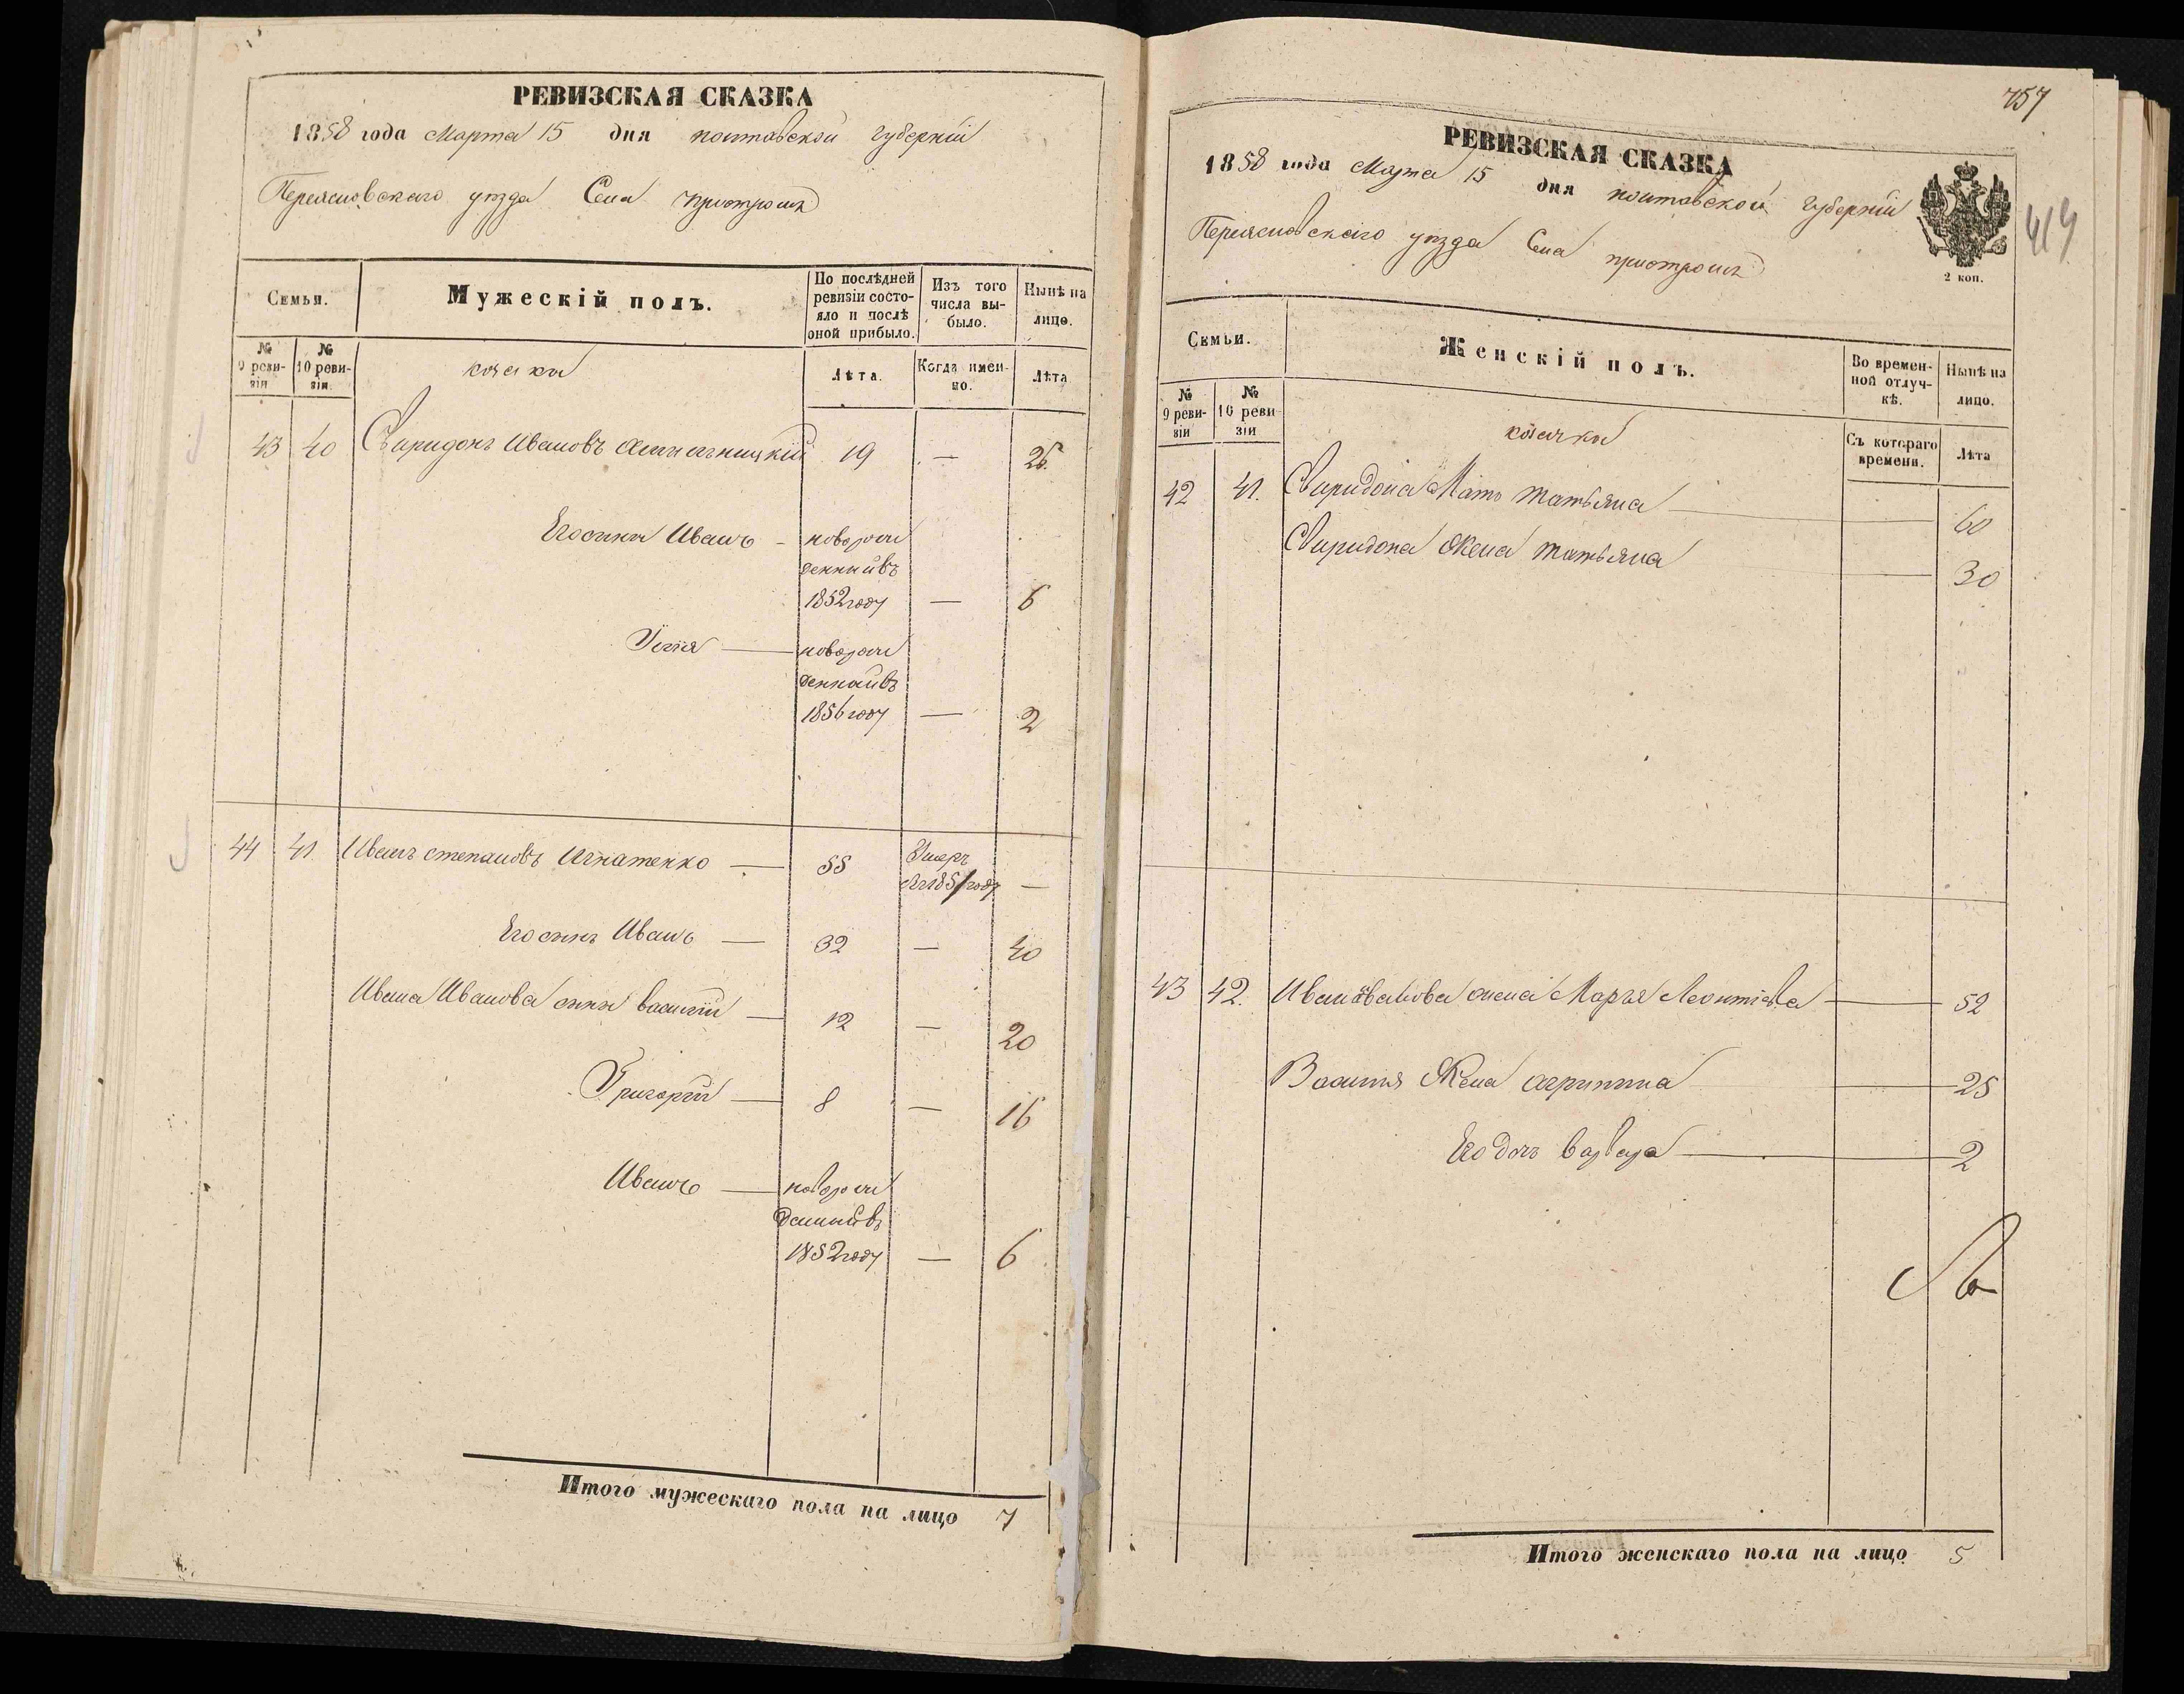 РЕВИЗСКАЯ СКАЗКА
1858 года Марта 15 дня полтавской губерніи
Переясловскаго уѣзда Села пристромъ
Семьи.
Мужескій полъ.
По послѣдней ревизіи состояло и послѣ оной прибыло.
Изъ того числа выбыло.
Нынѣ на лицо.
№ 9 ревизіи
№ 10 ревизіи.
козаки
Лѣта.
Когда именно.
Лѣта
43 40 Свиридонъ Ивановъ 19 — 26
Его сынъ Иванъ - новорож
денный въ
1852 году — 6
новорож
денный въ
1856 году — 2
44 41. Иванъ степановъ Игнатенко — 55 Умеръ
въ 1851 году —
Его сынъ Иванъ — 32 — 40
Ивана Иванова сынъ василій — 12 — 20
Григорій — 8 — 16
Иванъ — новорож
денный въ
1852 году — 6
Итого мужескаго пола на лицо 7
757
РЕВИЗСКАЯ СКАЗКА
1858 года Марта 15 дня полтавской губерніи
Переясловскаго уѣзда Села пристромъ
2 коп.
419
Семьи.
Женскій полъ.
Во временной отлучкѣ.
Нынѣ на лицо.
№ 9 ревизіи
№ 10 ревизіи
козачки
Съ котораго времени.
Лѣта
42 41. Свиридона Мать татьяна — 60
Свиридона Жена татьяна — 30
43 42. Ивана Иванова жена Марья Леонтіева — 52
Василія Жена агрипина — 25
Его дочь варвара — 2
Итого женскаго пола на лицо 5